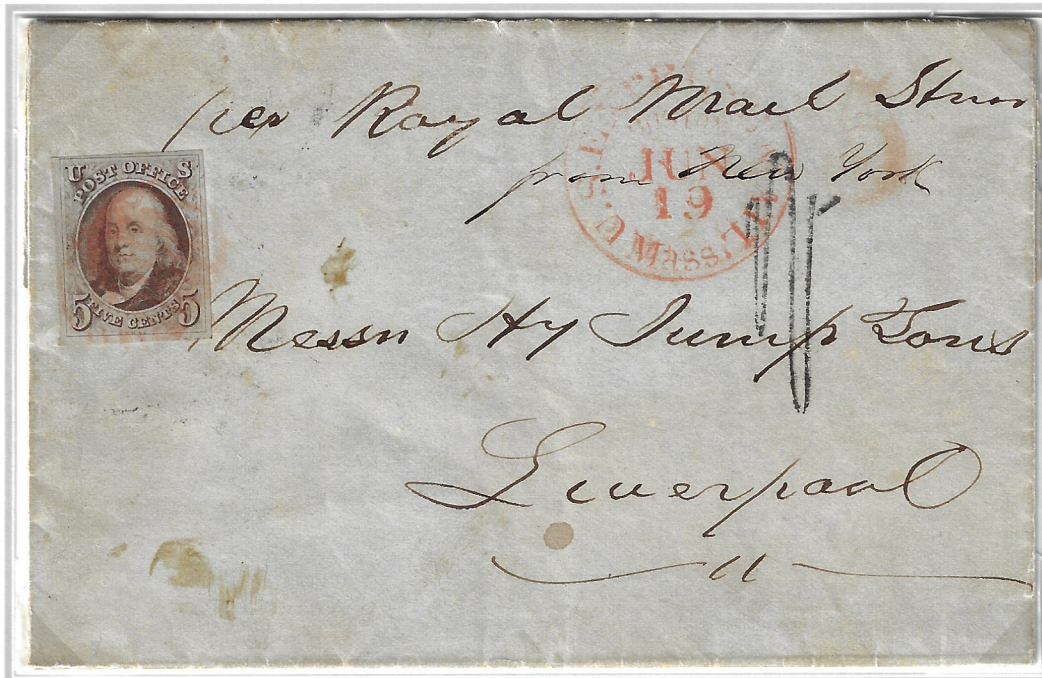 per Royal Mail Stmr
from New York
U S
POST OFFICE
5 FIVE CENTS 5
U.S. EXPRESS MAIL
JUN
19
MASS.
Messrs Hy Jump & Sons
Liverpool